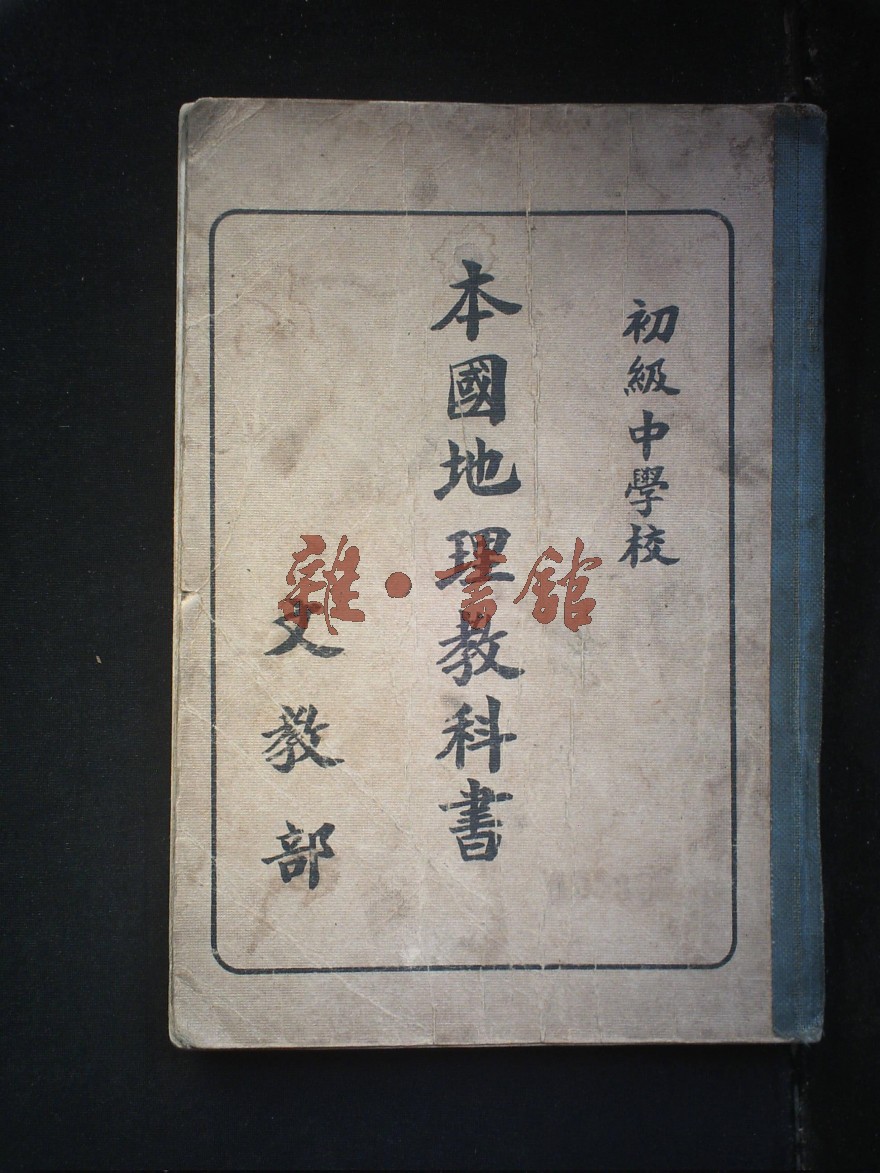 初級中學校
本國地理教科書
文教部
雜·書館